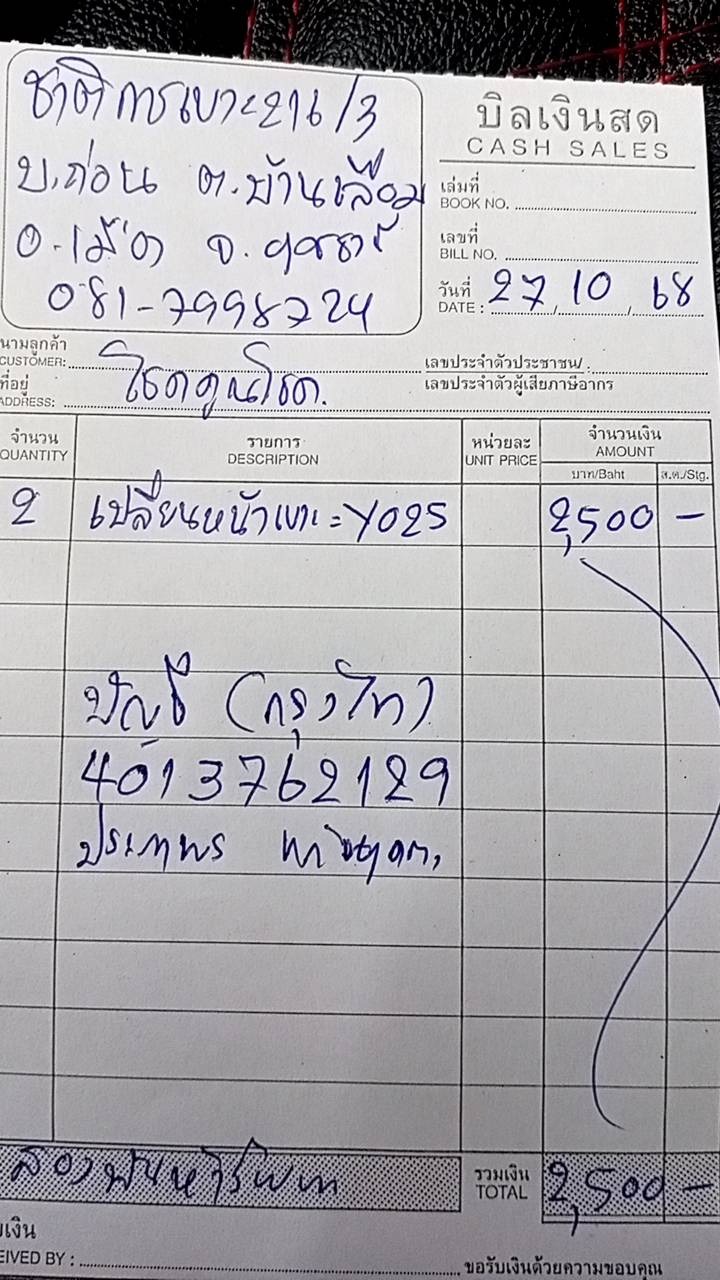 ชาติการเบาะ 216/3
บ.ถ่อน ต.บ้านเลื่อม
อ.เมือง จ.อุดรธานี
081-7998724
บิลเงินสด
CASH SALES
เล่มที่
BOOK NO.
เลขที่
BILL NO.
วันที่
DATE : 27 / 10 / 68
นามลูกค้า
CUSTOMER: โชคคูณโชค.
ที่อยู่
ADDRESS:
เลขประจำตัวประชาชน/ :
เลขประจำตัวผู้เสียภาษีอากร
จำนวน รายการ หน่วยละ จำนวนเงิน
QUANTITY DESCRIPTION UNIT PRICE AMOUNT
บาท/Baht ส.ต./Stg.
2 เปลี่ยนหน้าเบาะ = Y025 2,500 –
บัญชี (กรุงไทย)
4013762129
สองพันห้าร้อยบาท รวมเงิน 2,500 –
TOTAL
เงิน
EIVED BY :
ขอรับเงินด้วยความขอบคุณ